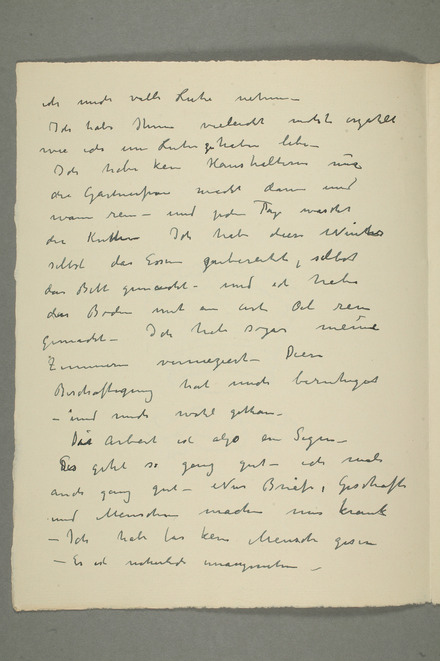 ich mich volle Ruhe nehmen –
Ich habe Ihnen vielleicht nicht erzählt
wie ich im leben –
Ich habe kein Haushälterin nur
die Gärtnerfrau macht dann und
wann rein – und jeden Tag wascht
die Ich habe diese Winter
selbst das Essen zubereitet, selbst
das Bett gemacht – und ich habe
das Boden mit Oel rein
gemacht – Ich hab sogar meine
Zimmern – Diese
Beschäftigung hat mich beruhigt
– und mich wohl gethan –
Die Arbeit ist also ein Segen –
Es geht so ganz gut – ich male
auch ganz gut – Nur Briefe, Geschäfte
und Menschen machen mir krank
– Ich hab fas kein Mensch gesen
– Es ist unangenehm –